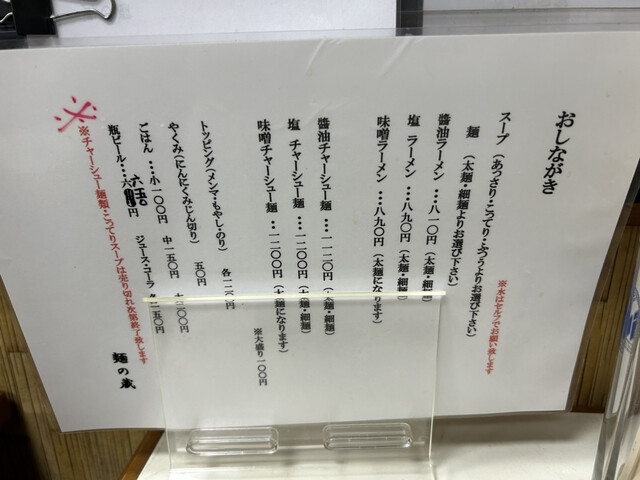 おしながき
※水はセルフでお願い致します
スープ（あっさり・こってり・ふつうよりお選び下さい）
麺（太麺・細麺よりお選び下さい）
醬油ラーメン・・・八一〇円（太麺・細麺）
塩 ラーメン・・・八九〇円（太麺・細麺）
味噌ラーメン・・・八九〇円（太麺になります）
醬油チャーシュー麺・・・一一二〇円（太麺・細麺）
塩 チャーシュー麺・・・一二〇〇円（太麺・細麺）
味噌チャーシュー麺・・・一二〇〇円（太麺になります）
※大盛り一〇〇円
トッピング（メンマ・もやし・のり） 各一二〇円
やくみ（にんにくみじん切り） 五〇円
ごはん・・・小一〇〇円 中一五〇円 大二〇〇円
瓶ビール・・・六五〇円 ジュース・コーラ 各二五〇円
※チャーシュー麺類・こってりスープは売り切れ次第終了致します
麺の蔵